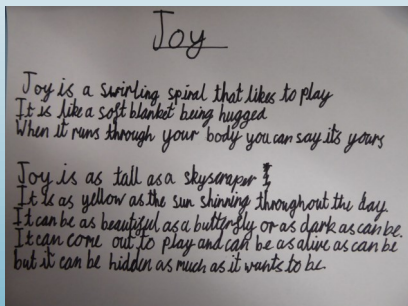 Joy
Joy is a swirling spiral that likes to play
It is like a soft blanket being hugged
When it runs through your body you can say its yours
Joy is as tall as a skyscraper
It is as yellow as the sun shinning throughout the day
It can be as beautiful as a butterfly or as dark as can be.
It can come out to play and can be as alive as can be
but it can be hidden as much as it wants to be.